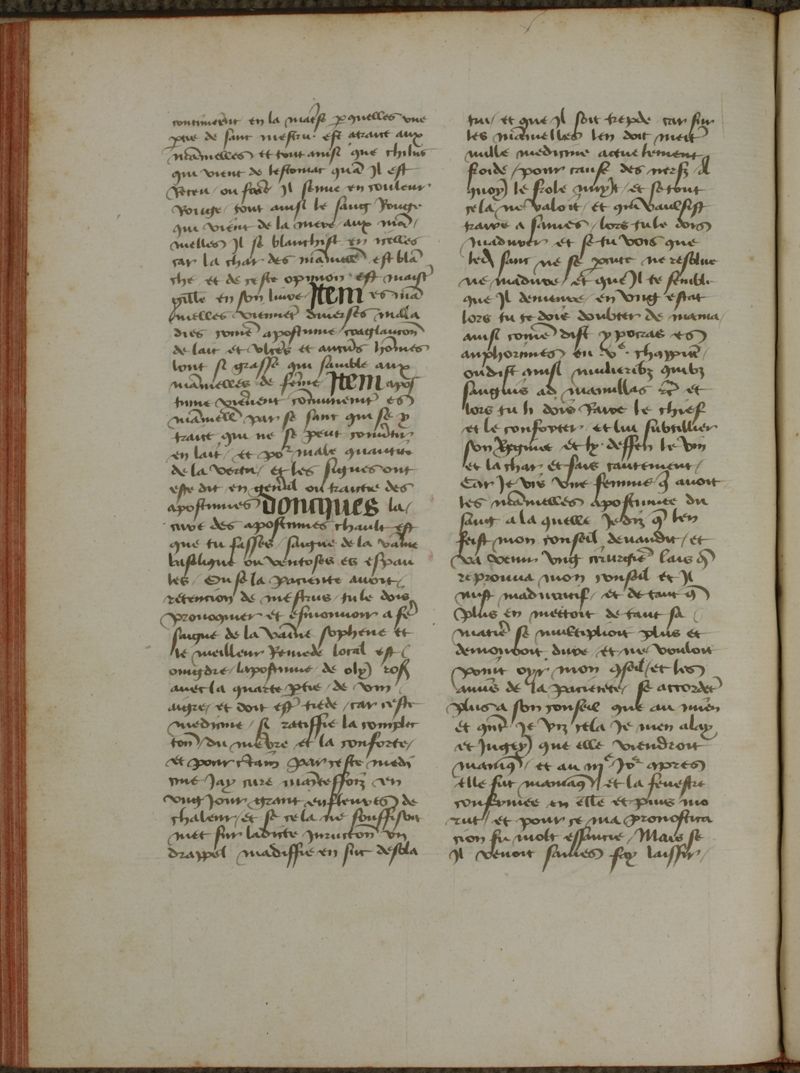 contiennent en la maise p quelles une
ptie de sanc mestru est atrait aux
mamelles et tout ainsi que chilus
qui vient de lestomac quant il est
Receu ou foie Il semue en couleur
Rouge tout ainsi le sang Rouge
qui vient de la mere aux ma
melles Il se blanchist en icelles
car la char des mamelles est blan
che et de ceste opinion est maist
guille en son livre Item es ma
melles viennent diverses mala
dies comme apostume coagulacion
de lait et ulceres et aucuns hommes
lont si grasse qui samble aux
mamelles de femme Item apos
tume viennent communement es
mamelles par le sanc qui se y
traict qui ne se peut convertir
en lait et por male quantite
de la vertu et les signes ont
este dit en general ou traictie des
apostumes doncques la
cure des apostumes chault est
que tu fasses saignie de la vaine
basilique ou ventoses es espau
les Ou se la paciente avoit
retencion de mestrus tu le dois
provoquer et esmouvoir a fe
saignie de la vaine sophene et
le meilleur Remede local est
oindre lapostume de oly ros
avec la quarte ptie de vin
aigre et doit estre tiede car ceste
medicine si ratiffie la complec
cion du membre et la conforte
et pour certain par ceste medi
cine Jay cure maintesfois en
ung Jour grant enfleures de
chaleur et se cela ne souffisoit
met sur ladicte inunction un
drappel madiffie en suc de sola
tru et que Il soit trepde car sur
les mamelles len doit mettre
nulle medicine actuelement
froide pour cause des nerfz A
quoy le froit nuyst et se tout
cela ne valoit et quil vaulsist
traire a sanies lors tu le dois
madurer et se tu vois que
led sanc ne se peut ne resolue
ne madure et que Il te semble
que Il demeure en ung estat
lors tu te dois doubter de mania
ainsi comme dist ypocras es
amphorismes en Ve chappitre
ou dist ainsi mulieribz quibz
sanguis ad mamillas etc et
lors tu li dois Raire le chief
et le conforter et lui subtillier
son Regime et ly deffen le vin
et la char et fais cautement
Car Je vis une femme q avoit
les mamelles apostumee du
sang a la quelle Je diz q len
feist mon conseil devandit et
va venir ung cirurgien lais q
reprouva mon conseil et Il
mist maduratif et de tant q
plus en mettoit de tant sa
matiere se multiplioit plus et
demouroit dure et ne vouloit
point oyr mon conseil et les
amis de la paciente se accorderent
plus a son conseil que au mien
et quant Je viz cela Je men alay
et Jugey que elle viendroit
maniaq et au iiie Jor apres
elle fut maniaq et la fenestre
confermee en elle et puis mo
rut et pour ce ma pronostica
cion fu molt essaucie Mais se
Il venoit sanies fay laisser